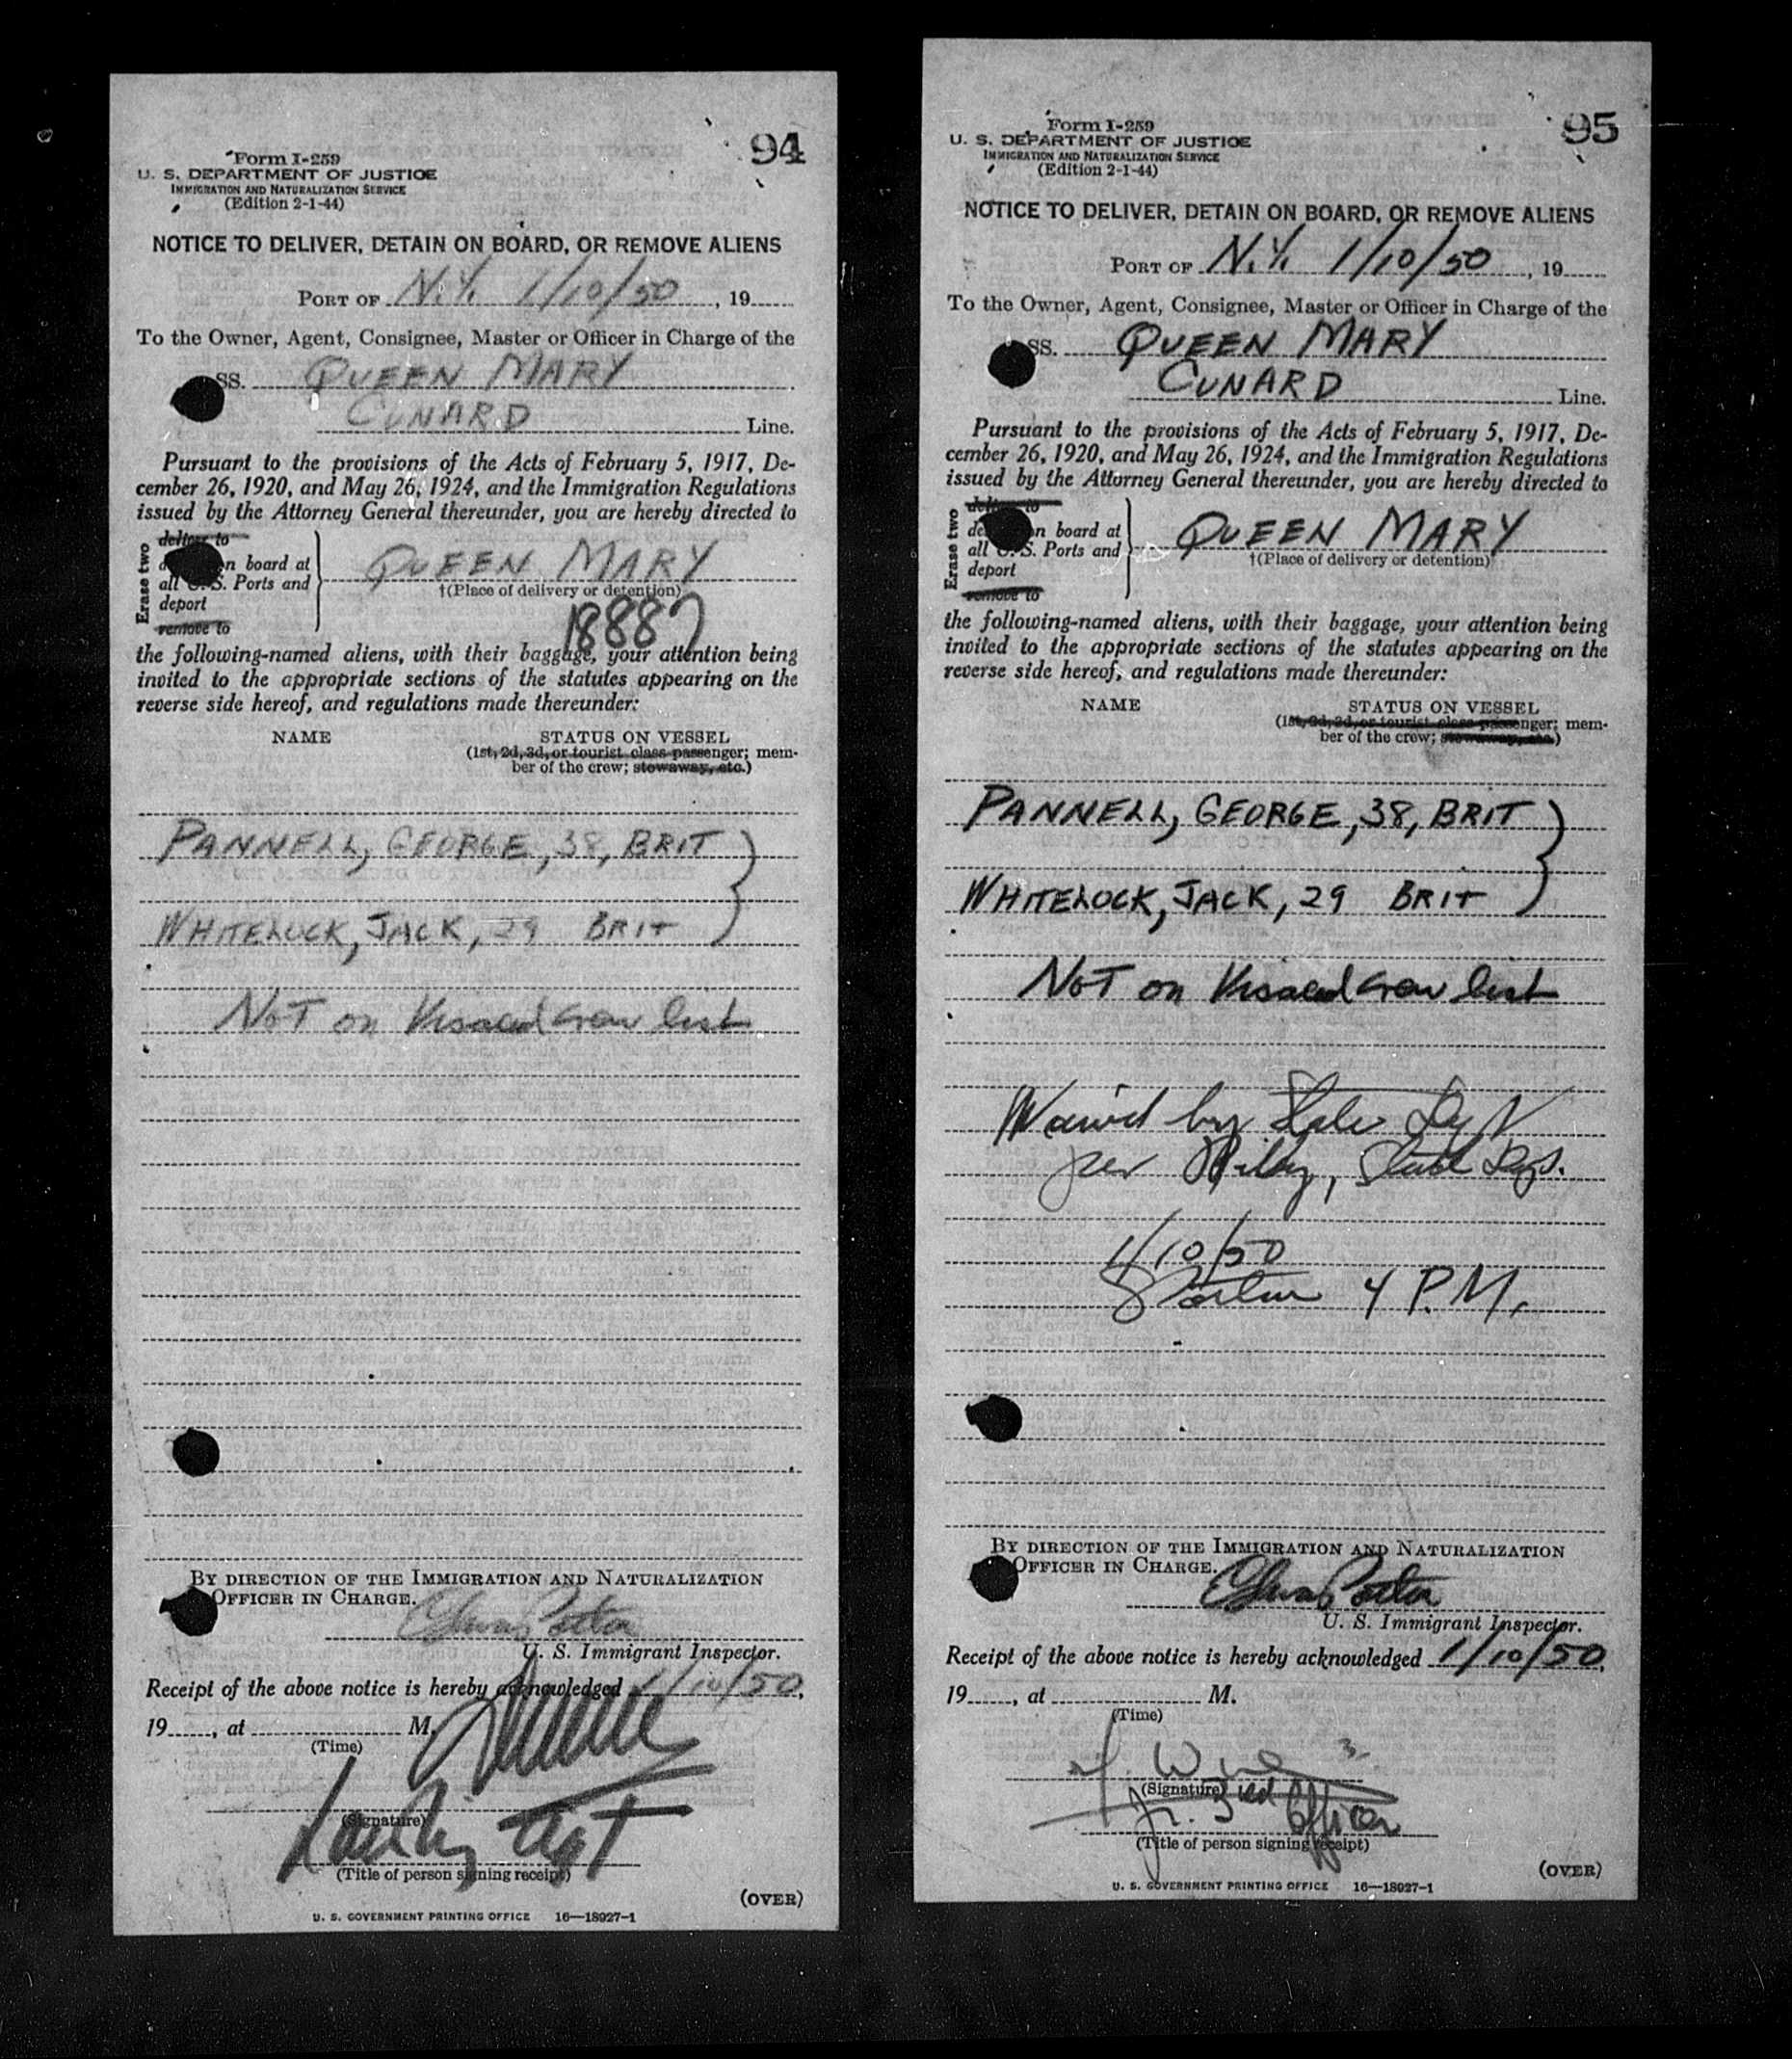 94
Form I-259
U. S. DEPARTMENT OF JUSTICE
IMMIGRATION AND NATURALIZATION SERVICE
(Edition 2-1-44)
NOTICE TO DELIVER, DETAIN ON BOARD, OR REMOVE ALIENS
PORT OF N.Y. 1/10/50, 19
To the Owner, Agent, Consignee, Master or Officer in Charge of the
SS. QUEEN MARY
CUNARD Line.
Pursuant to the provisions of the Acts of February 5, 1917, De-
cember 26, 1920, and May 26, 1924, and the Immigration Regulations
issued by the Attorney General thereunder, you are hereby directed to
Erase two
deliver to
on board at
all U.S. Ports and
deport
remove to
QUEEN MARY
†(Place of delivery or detention)
18887
the following-named aliens, with their baggage, your attention being
invited to the appropriate sections of the statutes appearing on the
reverse side hereof, and regulations made thereunder:
NAME STATUS ON VESSEL
(1st, 2d, 3d, or tourist class passenger; mem-
ber of the crew; stowaway, etc.)
PANNELL, GEORGE, 38, BRIT
WHITELOCK, JACK, 29 BRIT
NOT on Visaed crew list
BY DIRECTION OF THE IMMIGRATION AND NATURALIZATION
OFFICER IN CHARGE.
U. S. Immigrant Inspector.
Receipt of the above notice is hereby acknowledged 1/10/50,
19, at M.
(Time)
(Signature)
(Title of person signing receipt)
(OVER)
U. S. GOVERNMENT PRINTING OFFICE 16—18927-1
95
Form I-259
U. S. DEPARTMENT OF JUSTICE
IMMIGRATION AND NATURALIZATION SERVICE
(Edition 2-1-44)
NOTICE TO DELIVER, DETAIN ON BOARD, OR REMOVE ALIENS
PORT OF N.Y. 1/10/50, 19
To the Owner, Agent, Consignee, Master or Officer in Charge of the
SS. QUEEN MARY
CUNARD Line.
Pursuant to the provisions of the Acts of February 5, 1917, De-
cember 26, 1920, and May 26, 1924, and the Immigration Regulations
issued by the Attorney General thereunder, you are hereby directed to
Erase two
deliver to
on board at
all U.S. Ports and
deport
remove to
QUEEN MARY
†(Place of delivery or detention)
the following-named aliens, with their baggage, your attention being
invited to the appropriate sections of the statutes appearing on the
reverse side hereof, and regulations made thereunder:
NAME STATUS ON VESSEL
(1st, 2d, 3d, or tourist class passenger; mem-
ber of the crew; stowaway, etc.)
PANNELL, GEORGE, 38, BRIT
WHITELOCK, JACK, 29 BRIT
NOT on Visaed crew list
Waived by State Dept
per State Dept.
1/10/50
4 P.M.
BY DIRECTION OF THE IMMIGRATION AND NATURALIZATION
OFFICER IN CHARGE.
U. S. Immigrant Inspector.
Receipt of the above notice is hereby acknowledged 1/10/50,
19, at M.
(Time)
(Signature)
Jr. 3rd Officer
(Title of person signing receipt)
(OVER)
U. S. GOVERNMENT PRINTING OFFICE 16—18927-1